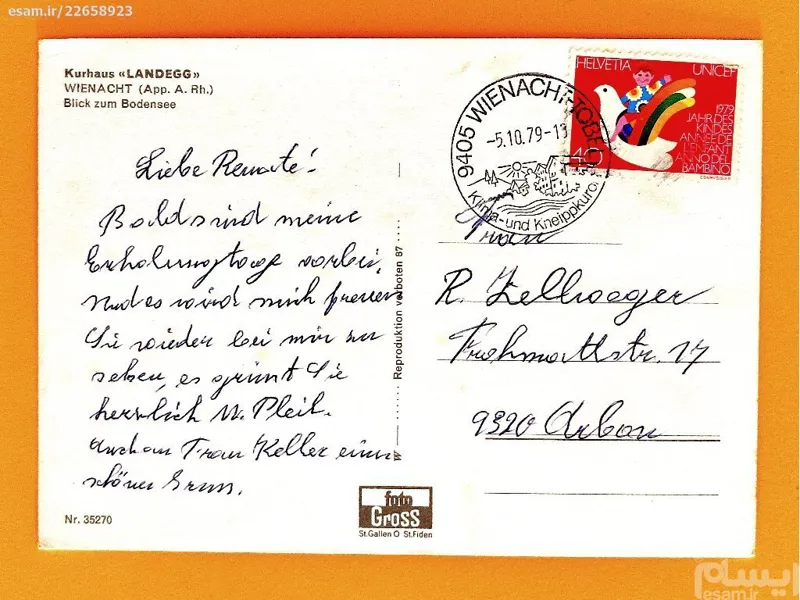 esam.ir/22658923
Kurhaus «LANDEGG»
WIENACHT (App. A. Rh.)
Blick zum Bodensee
9405 WIENACHT-TOBEL
-5.10.79-13
Klima- und Kneippkuror
HELVETIA UNICEF
1979
JAHR DES
KINDES
ANNÉE DE
L'ENFANT
ANNO DEL
BAMBINO
40
COURVOISIER
Liebe Renate!
Bald sind meine
Erholungstage vorbei,
und es wird mich freuen
Sie wieder bei mir zu
sehen, es grüsst Sie
herzlich M. Pleil.
Auch an Frau Keller einen
schönen Gruss.
Reproduktion verboten 87
Frau
R. Zellweger
Str. 17
9320 Arbon
Nr. 35270
foto
Gross
St.Gallen O St.Fiden
ایسام
esam.ir